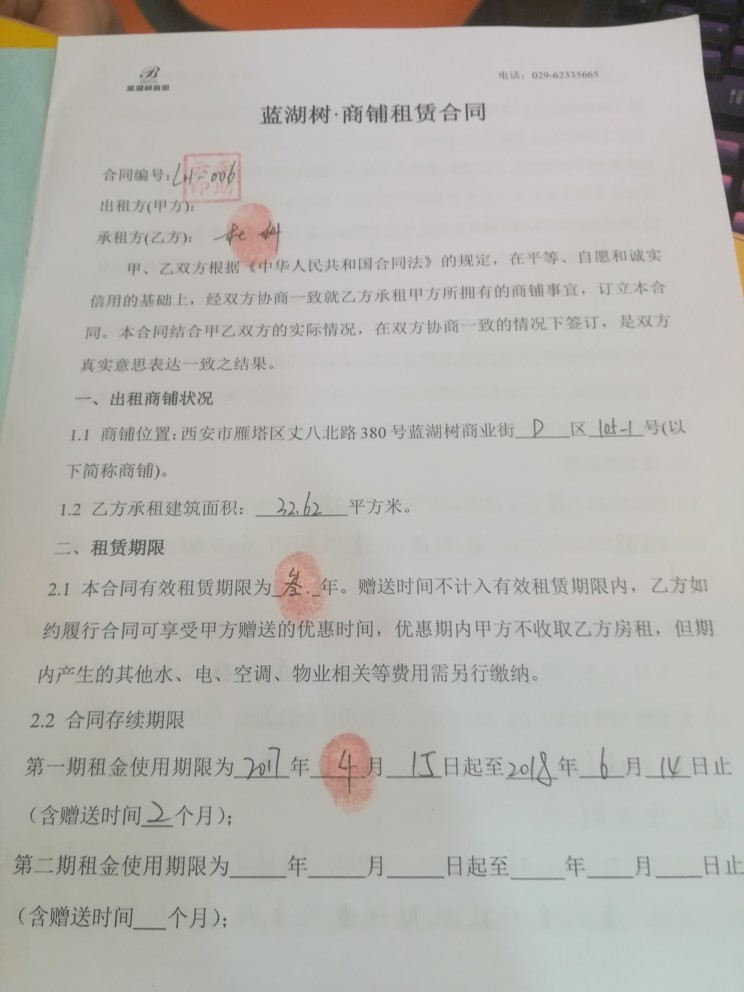 B
蓝湖树商街
电话：029-62335665
蓝湖树·商铺租赁合同
合同编号：LH-006
出租方(甲方)：
承租方(乙方)：
甲、乙双方根据《中华人民共和国合同法》的规定，在平等、自愿和诚实
信用的基础上，经双方协商一致就乙方承租甲方所拥有的商铺事宜，订立本合
同。本合同结合甲乙双方的实际情况，在双方协商一致的情况下签订，是双方
真实意思表达一致之结果。
一、出租商铺状况
1.1 商铺位置：西安市雁塔区丈八北路380号蓝湖树商业街 D 区 105-1 号(以
下简称商铺)。
1.2 乙方承租建筑面积： 32.62 平方米。
二、租赁期限
2.1 本合同有效租赁期限为 叁 年。赠送时间不计入有效租赁期限内，乙方如
约履行合同可享受甲方赠送的优惠时间，优惠期内甲方不收取乙方房租，但期
内产生的其他水、电、空调、物业相关等费用需另行缴纳。
2.2 合同存续期限
第一期租金使用期限为 2017 年 4 月 15 日起至 2018 年 6 月 14 日止
(含赠送时间 2 个月)；
第二期租金使用期限为____年____月____日起至____年____月____日止
(含赠送时间___个月)；